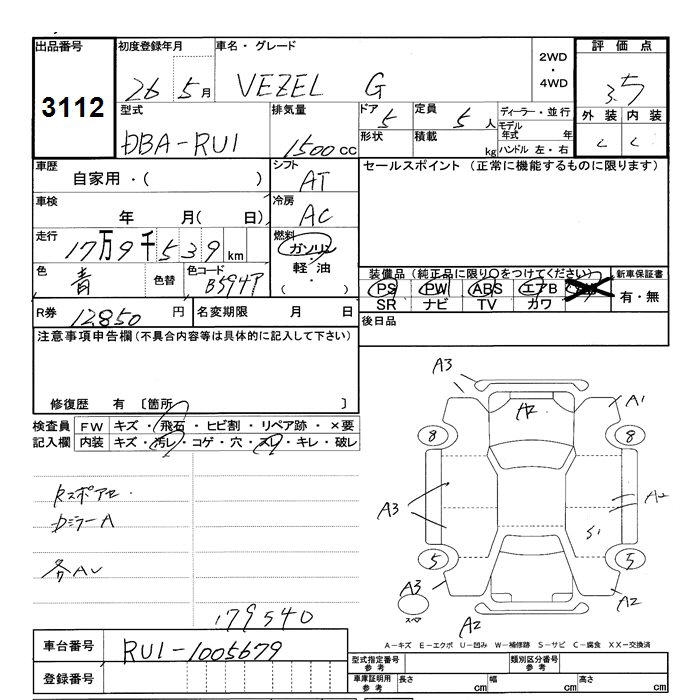 出品番号 初度登録年月 車名・グレード 2WD・4WD 評価点
3112 26 5月 VEZEL G 3.5
型式 排気量 ドア 定員 ディーラー・並行 外装 内装
DBA-RU1 1500cc 5 5人 モデル年式 年 C C
形状 積載 kg ハンドル 左・右
車歴 シフト セールスポイント (正常に機能するものに限ります)
自家用・( ) AT
車検 冷房
年 月( 日) AC
走行 燃料
17万9千539km ガソリン・軽油
( ・ )
色 青 色替 色コード B594P
装備品(純正品に限り○をつけてください) 新車保証書
PS PW ABS エアB 有・無
SR ナビ TV カワ
R券 12850円 名変期限 月 日 後日品
注意事項申告欄(不具合内容等は具体的に記入して下さい)
修復歴 有 〔箇所 〕
検査員記入欄 FW キズ・飛石・ヒビ割・リペア跡・×要
内装 キズ・汚レ・コゲ・穴・スレ・キレ・破レ
A3
A1
8 8
A3 A2
S1
5 5
A3
スペア
A2
A2
ミラーA
各AU
179540
A-キズ E-エクボ U-凹み W-補修跡 S-サビ C-腐食 XX-交換済
車台番号 RU1-1005679
型式指定番号 参考 類別区分番号 参考
登録番号 車庫証明用 参考 長さ cm 幅 cm 高さ cm